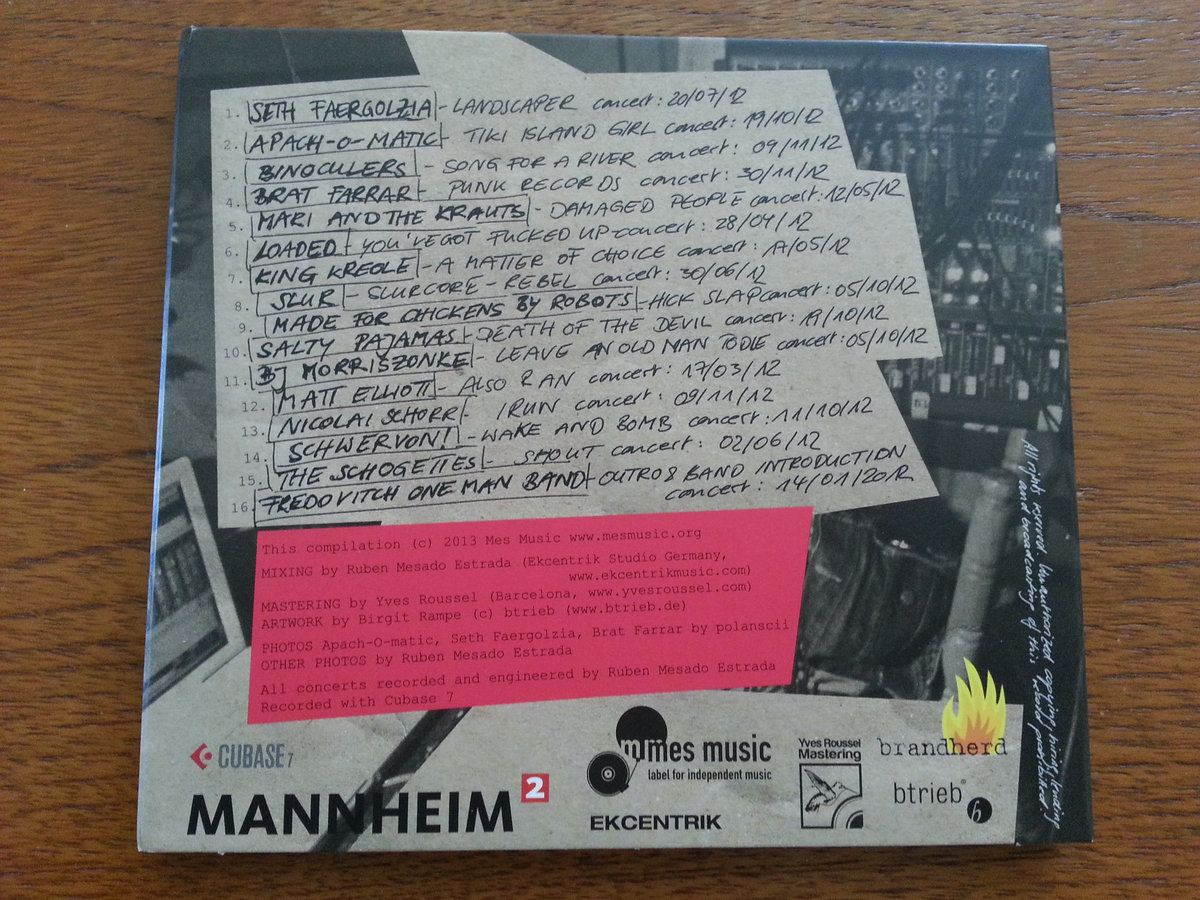 1. SETH FAERGOLZIA - LANDSCAPER concert: 20/07/12
2. APACH-O-MATIC - TIKI ISLAND GIRL concert: 19/10/12
3. BINOCULERS - SONG FOR A RIVER concert: 09/11/12
4. BRAT FARRAR - PUNK RECORDS concert: 30/11/12
5. MARI AND THE KRAUTS - DAMAGED PEOPLE concert: 12/05/12
6. LOADED - YOU'VE GOT FUCKED UP - concert: 28/04/12
7. KING KREOLE - A MATTER OF CHOICE concert: 17/05/12
8. SLUR - SLURCORE - REBEL concert: 30/06/12
9. MADE FOR CHICKENS BY ROBOTS - HICK SLAP concert: 05/10/12
10. SALTY PAJAMAS - DEATH OF THE DEVIL concert: 19/10/12
11. BJ MORRISZONKLE - LEAVE AN OLD MAN TO DIE concert: 05/10/12
12. MATT ELLIOTT - ALSO RAN concert: 17/03/12
13. NICOLAI SCHORR - I RUN concert: 09/11/12
14. SCHWERVON! - WAKE AND BOMB concert: 11/10/12
15. THE SCHOGETTES - SHOUT concert: 02/06/12
16. FREDOVITCH ONE MAN BAND - OUTRO & BAND INTRODUCTION
concert: 14/01/2012
This compilation (c) 2013 Mes Music www.mesmusic.org
MIXING by Ruben Mesado Estrada (Ekcentrik Studio Germany,
www.ekcentrikmusic.com)
MASTERING by Yves Roussel (Barcelona, www.yvesroussel.com)
ARTWORK by Birgit Rampe (c) btrieb (www.btrieb.de)
PHOTOS Apach-O-matic, Seth Faergolzia, Brat Farrar by polanscii
OTHER PHOTOS by Ruben Mesado Estrada
All concerts recorded and engineered by Ruben Mesado Estrada
Recorded with Cubase 7
All rights reserved. Unauthorized copying, hiring, lending
and broadcasting of this record prohibited
CUBASE 7
MANNHEIM 2
mmes music
label for independent music
EKCENTRIK
Yves Roussel
Mastering
brandherd
btrieb